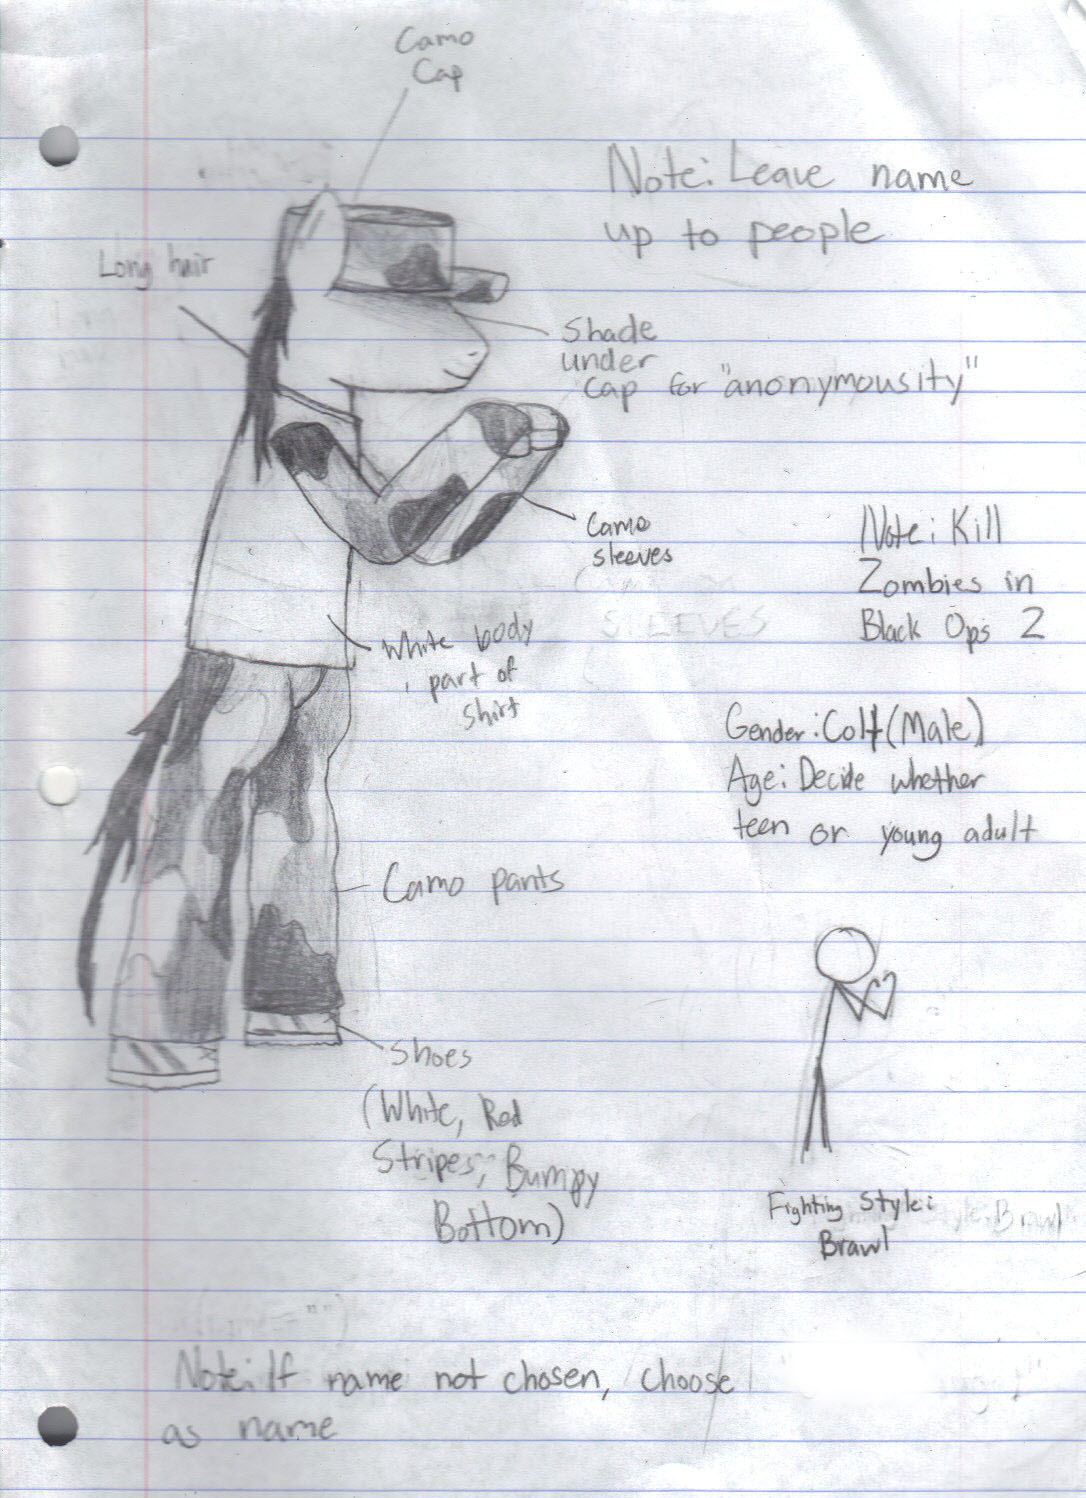 Camo
Cap
Note: Leave name
up to people
Long hair
Shade
under
cap for "anonymousity"
Camo
sleeves
SLEEVES
Note: Kill
Zombies in
Black Ops 2
White body
part of
shirt
Gender: Colt (Male)
Age: Decide whether
teen or young adult
Camo pants
Shoes
(White, Red
Stripes, Bumpy
Bottom)
Fighting Style:
Brawl
Style: Brawl
Note: If name not chosen, choose
as name